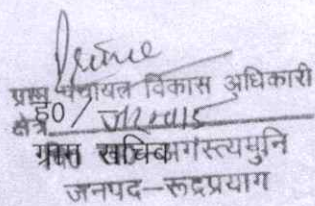 ग्राम पंचायत विकास अधिकारी
ह0/
क्षेत्र
ग्राम सचिव अगस्त्यमुनि
जनपद–रूद्रप्रयाग